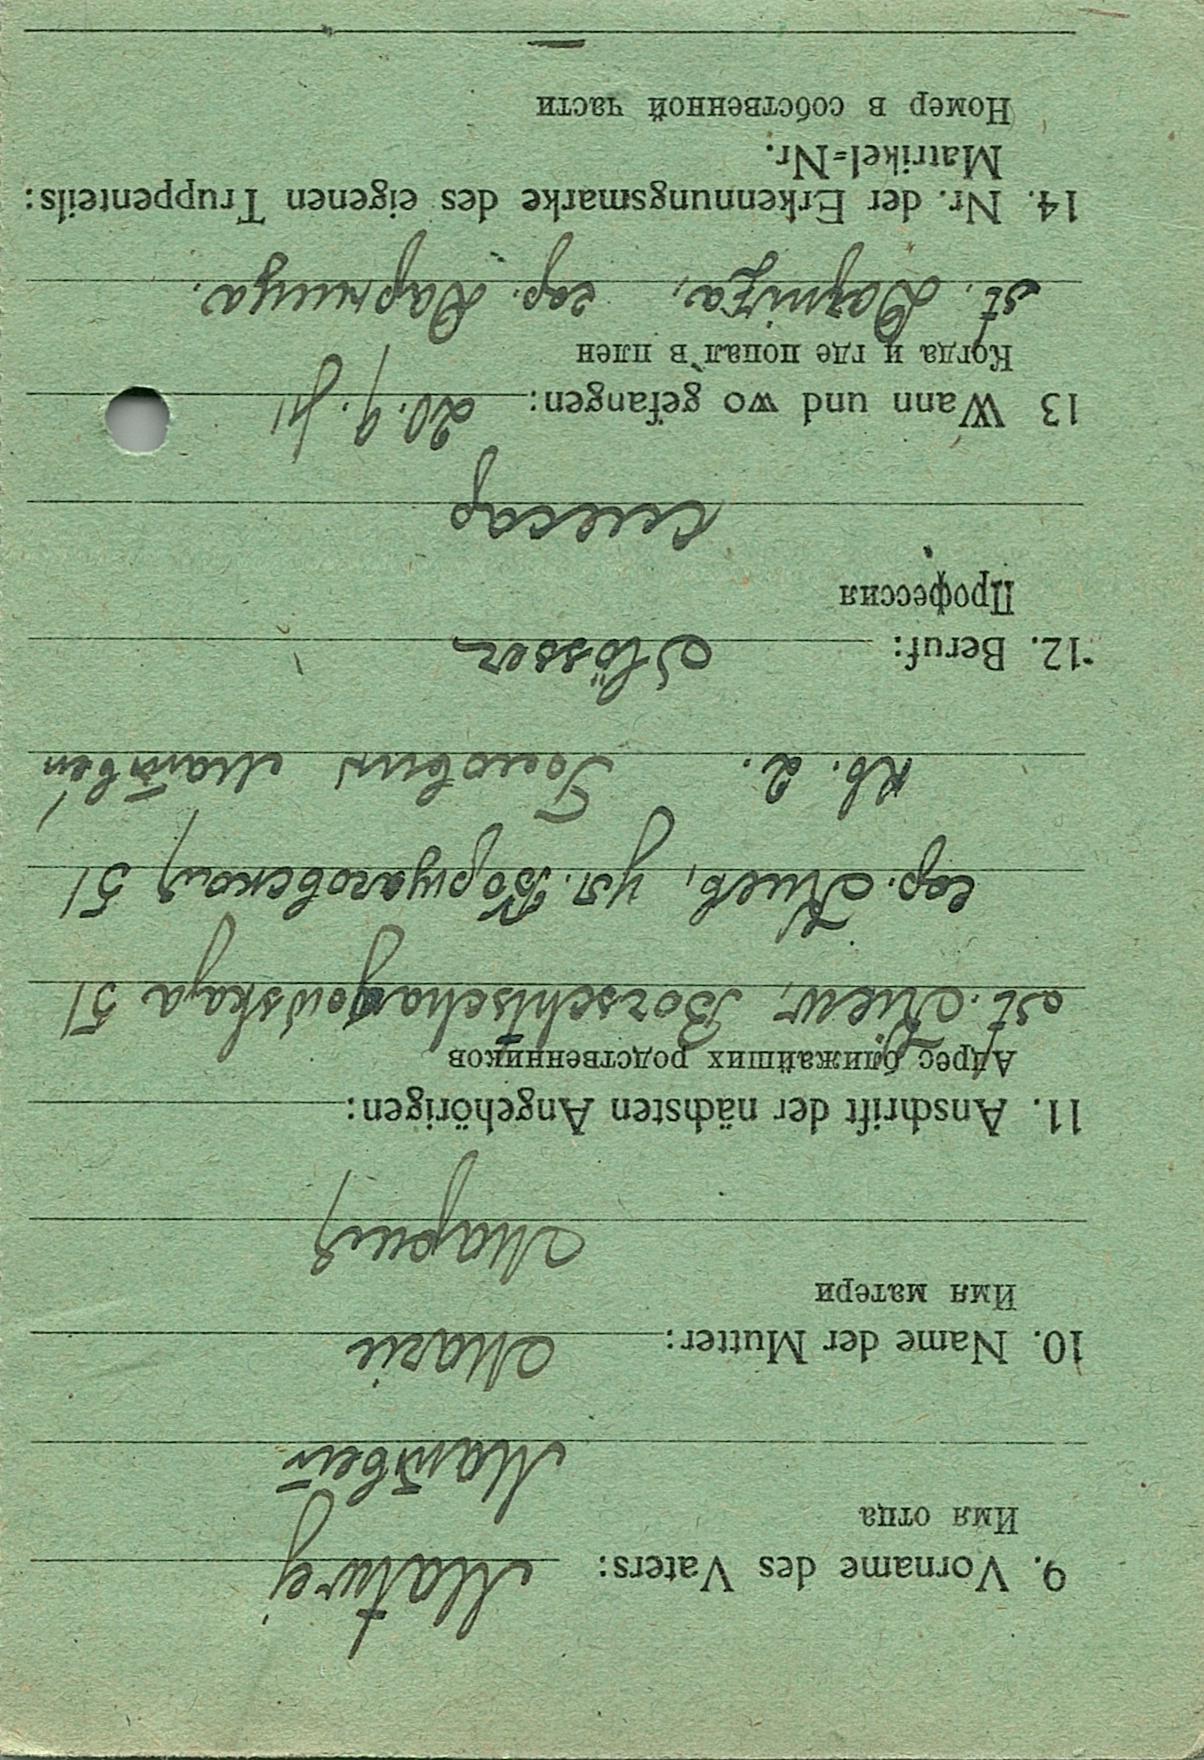 9. Vorname des Vaters: Matwej
Имя отца
Матвей
10. Name der Mutter: Marie
Имя матери
Мария
11. Anschrift der nächsten Angehörigen:
Адрес ближайших родственников
st. Kiew, Borschtschagowskaja 51
гор. Киев, ул. Борщаговская 51
кв. 2. Матвей
12. Beruf: Slösser
Профессия
слесар
13 Wann und wo gefangen: 20.9.41
Когда и где попал в плен
st. Darniza, гор. Дарница.
14. Nr. der Erkennungsmarke des eigenen Truppenteils:
Matrikel=Nr.
Номер в собственной части
—